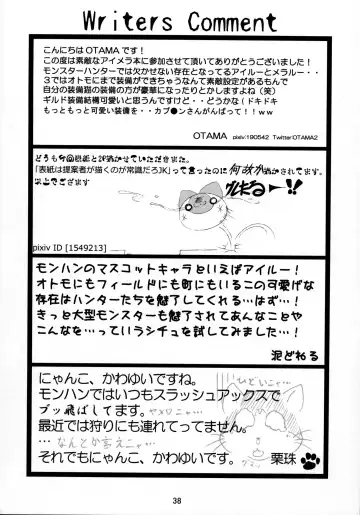 Writers Comment
こんにちは OTAMA です！
この度は素敵なアイメラ本に参加させて頂いてありがとうございました！
モンスターハンターでは欠かせない存在となってるアイルーとメラルー・・
３ではオトモにまで装備ができちゃうなんて素敵設定があるもんで
自分の装備類の装備の方が豪華になったりとかしますよね（笑）
ギルド装備結構可愛いと思うんですけど・・どうかな（ドキドキ
もっともっと可愛い装備を・・カプ●ンさんがんばって！！ｗｗ
OTAMA pixiv:190542 Twitter:OTAMA2
どうも今回表紙と
「表紙は提案者が描くのが常識だろJK」って言ったのに何故か
pixiv ID [1549213]
モンハンのマスコットキャラといえばアイルー！
オトモにもフィールドにも町にもいるこの可愛げな
存在はハンターたちを魅了してくれる…はず…！
きっと大型モンスターも魅了されてあんなことや
こんなを…っていうラシチュを試してみました…！
泥どねる
にゃんこ、かわゆいですね。
モンハンではいつもスラッシュアックスで
ブッ飛ばしてます。
ヤメロニャ…
ひどいニャ…
最近では狩りにも連れてってません。
…なんとか言えニャ…
それでもにゃんこ、かわゆいです。
栗珠
38